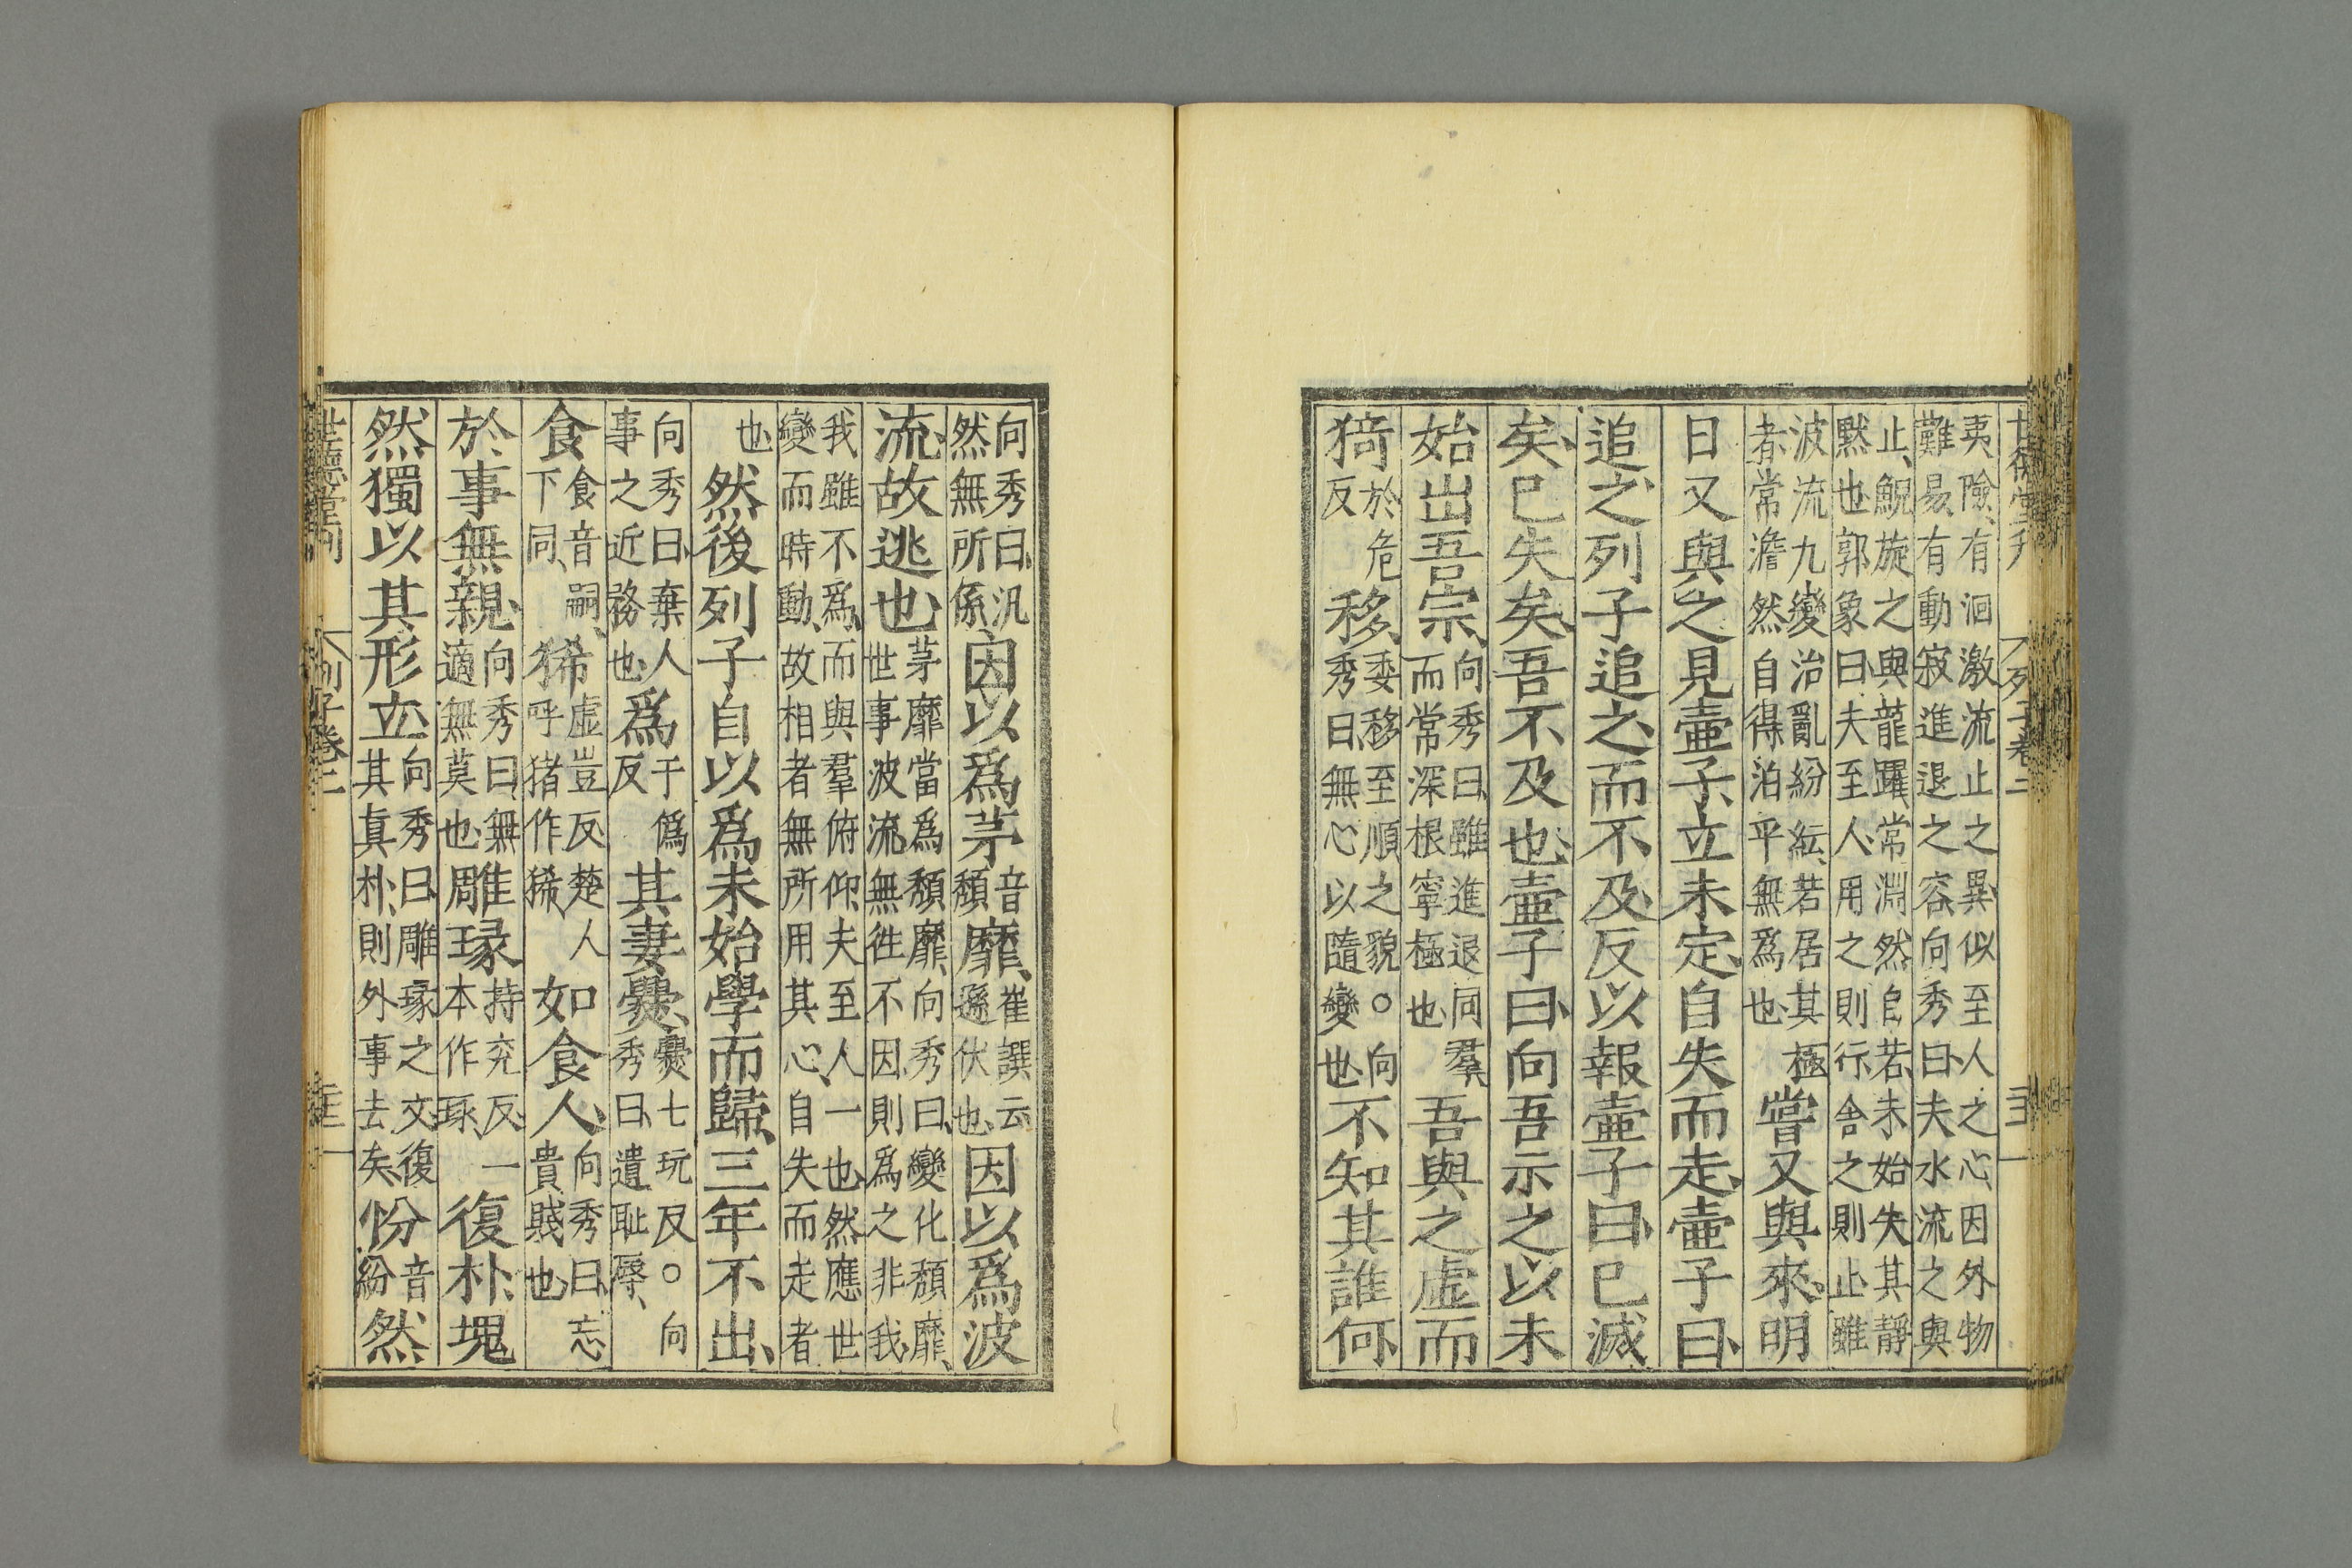 夷險、有洄激流止之異、似至人之心因外物
難易、有動寂進退之容、向秀曰、夫水流之與
止、鯢旋之與龍躍、常淵然自若、未始失其靜
黙也、郭象曰、夫至人用之則行、舍之則止、雖
波流九變、治亂紛紜、若居其極
者、常澹然自得、泊乎無爲也、嘗又與來。明
日又與之見壷子、立未定、自失而走、壷子曰、
追之、列子追之、而不及、反以報壷子曰、已滅
矣、已失矣、吾不及也、壷子曰、向吾示之以未
始出吾宗、向秀曰、雖進退同羣
而常深根寧極也、吾與之虛而
猗於危
反移、委移至順之貌。向
秀曰、無心以隨變也、不知其誰何
列子卷二
向秀曰、汎
然無所係、因以爲茅音
頽靡、崔譔云
遜伏也、因以爲波
流、故逃也、茅靡當爲頽靡、向秀曰、變化頽靡、
世事波流、無徃不因、則爲之非我、
我雖不爲、而與羣俯仰、夫至人一也、然應世
變而時動、故相者無所用其心、自失而走者
也、然後列子自以爲未始學而歸、三年不出、
向秀曰、棄人
事之近務也、爲于僞
反其妻爨、爨七玩反○向
秀曰、遺恥辱、
食食音嗣、
下同、狶虛豈反、楚人
呼猪作狶、如食人、向秀曰、忘
貴賤也、
於事無親、向秀曰、無
適無莫也、雕瑑持兖反、一
本作琢、復朴、塊
然獨以其形立、向秀曰、雕瑑之文、復
其眞朴、則外事去矣、㤋音
紛然
世德堂刊 列子卷二